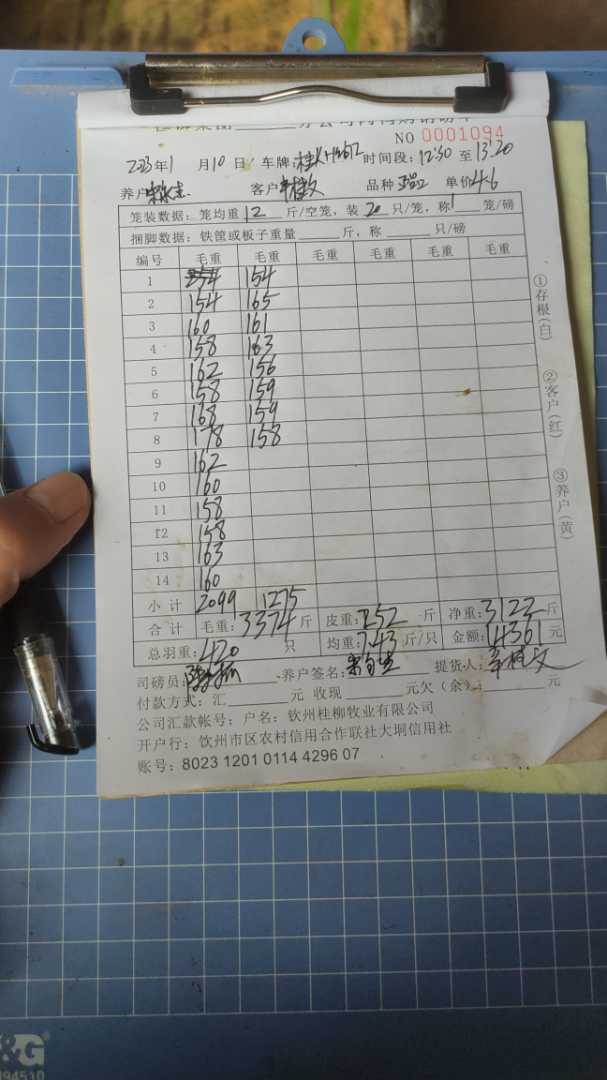 NO 0001094
2023年1月10日 车牌: 时间段:12:30至13:20
养户 客户 品种 单价4.6
笼装数据:笼均重12斤/空笼,装20只/笼,称1笼/磅
捆脚数据:铁筐或板子重量 斤,称 只/磅
编号 毛重 毛重 毛重 毛重 毛重 毛重
1 154
2 154 165
3 160 161
4 158 163
5 162 156
6 158 159
7 168 159
8 178 158
9 162
10 160
11 158
12 158
13 163
14 160
小计 2099 1275
合计 毛重:3374斤 皮重:252斤 净重:3122斤
总羽重:420只 均重:7.43斤/只 金额:14361元
司磅员: 养户签名: 提货人:
付款方式:汇 元 收现 元欠(余): 元
公司汇款帐号:户名:钦州桂柳牧业有限公司
开户行:钦州市区农村信用合作联社大垌信用社
账号:8023 1201 0114 4296 07
①存根(白)
②客户(红)
③养户(黄)
&G
94510